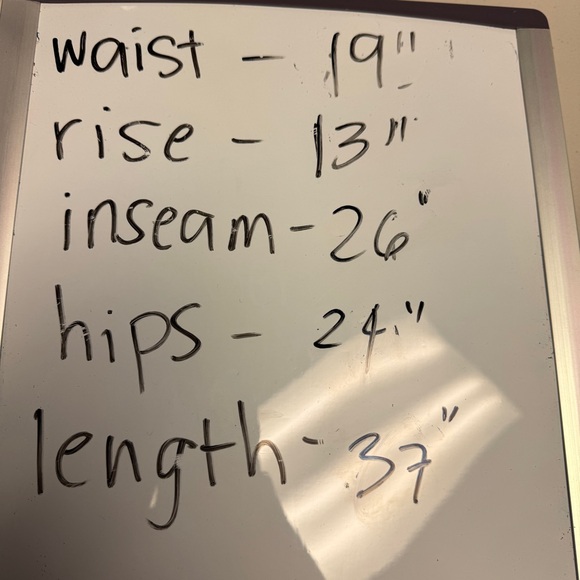 waist - 19"
rise - 13"
inseam - 26"
hips - 24"
length - 37"